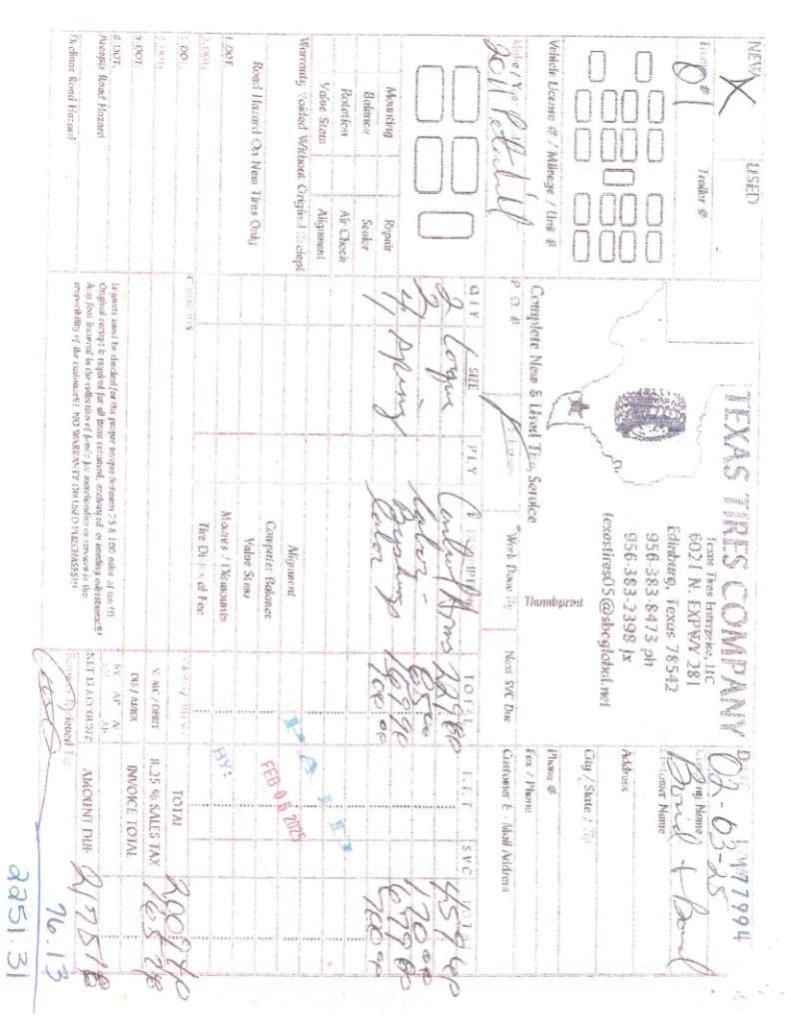 NEW USED
X
Truck # Trailer #
01
Vehicle License # / Mileage / Unit #
Make / Yr.
2011 Peterbilt
Mounting Repair
Balance Sealer
Rotation Air Check
Valve Stem Alignment
Warranty Voided Without Original Reciept
Road Hazard On New Tires Only
1 DOT
2 DOT.
3 DOT.
5 DOT.
6 DOT.
Accepts Road Hazard
Declines Road Hazard
TEXAS TIRES COMPANY
Texas Tires Enterprise, LLC
6021 N. EXPWY 281
Edinburg, Texas 78542
956-383-8473 ph
956-383-2398 fx
texastires05@sbcglobal.net
Complete New & Used Tire Service
Thumbprint
P.O. # Work Done By Next SVC Due
QTY SIZE PLY TOTAL F.E.T SVC TOTAL
2 torque Control Arms 229.80 459.60
2 Labor 85.00 170.00
4 Spring Bushings
Labor 100.00
Alignment
Computer Balance
Valve Stem
Mounts / Dismounts
Tire Disposal Fee
Lugnuts must be checked for the proper torque between 75 & 100 miles of use!!!
Original reciept is required for all items returned, exchanged or needing adjustments!
Any fees incurred in the collection of funds for merchandise or services is the
responsibility of the customer!! NO WARRANTY ON USED PURCHASES!!!
77994
02-03-25
Company Name
Customer Name
Address
City / State / Zip
Phone #
Fax / Phone
Customer E-Mail Address
FEB 05 2025
BY:
TOTAL
V, MC / DEBIT 8.25 % SALES TAX 165.78
DIS / AMEX INVOICE TOTAL
NET 15 ACCOUNT AMOUNT DUE 2175.18
76.13
2251.31